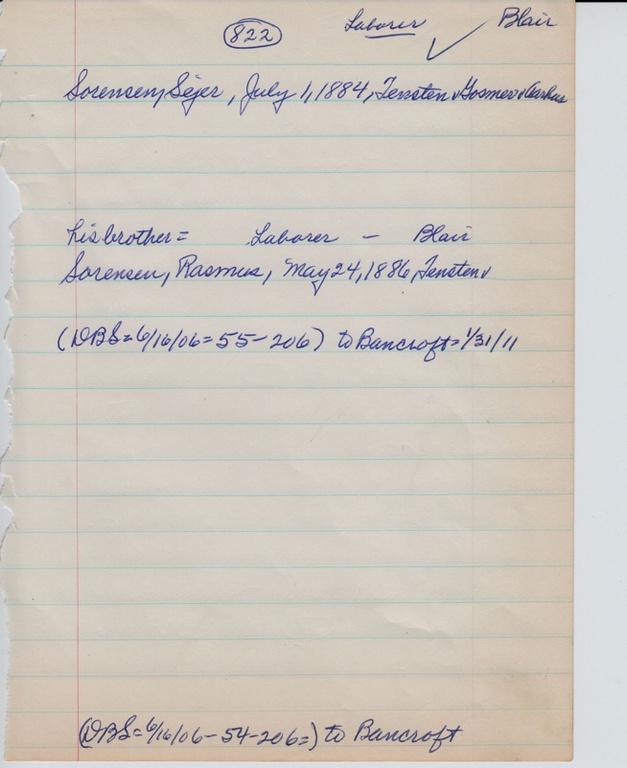 822 Laborer ✓ Blair
Sorensen, Sejer, July 1, 1884, Tensten v Gosmer v Aarhus
his brother = Laborer – Blair
Sorensen, Rasmus, May 24, 1886, Tensten v
(DBS = 6/16/06 = 55 – 206) to Bancroft = 1/31/11
(DBS = 6/16/06 – 54 – 206 =) to Bancroft